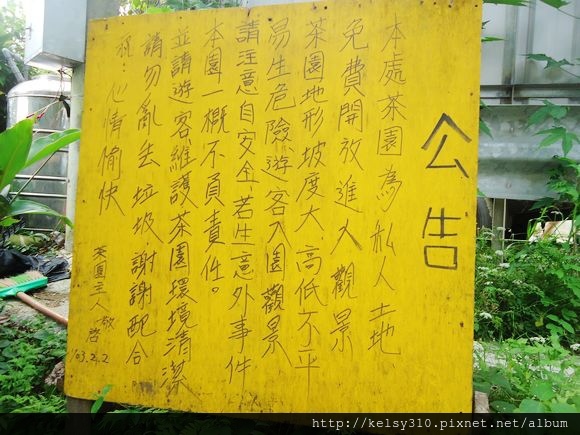 公告
本處茶園為私人土地
免費開放進入觀景
茶園地形坡度大.高低不平
易生危險遊客入園觀景
請注意自安全.若生意外事件
本園一概不負責任。
並請遊客維護茶園環境清潔
請勿亂丟垃圾.謝謝配合
祝:心情愉快
茶園主人敬啓
103.2.2
http://kelsy310.pixnet.net/album